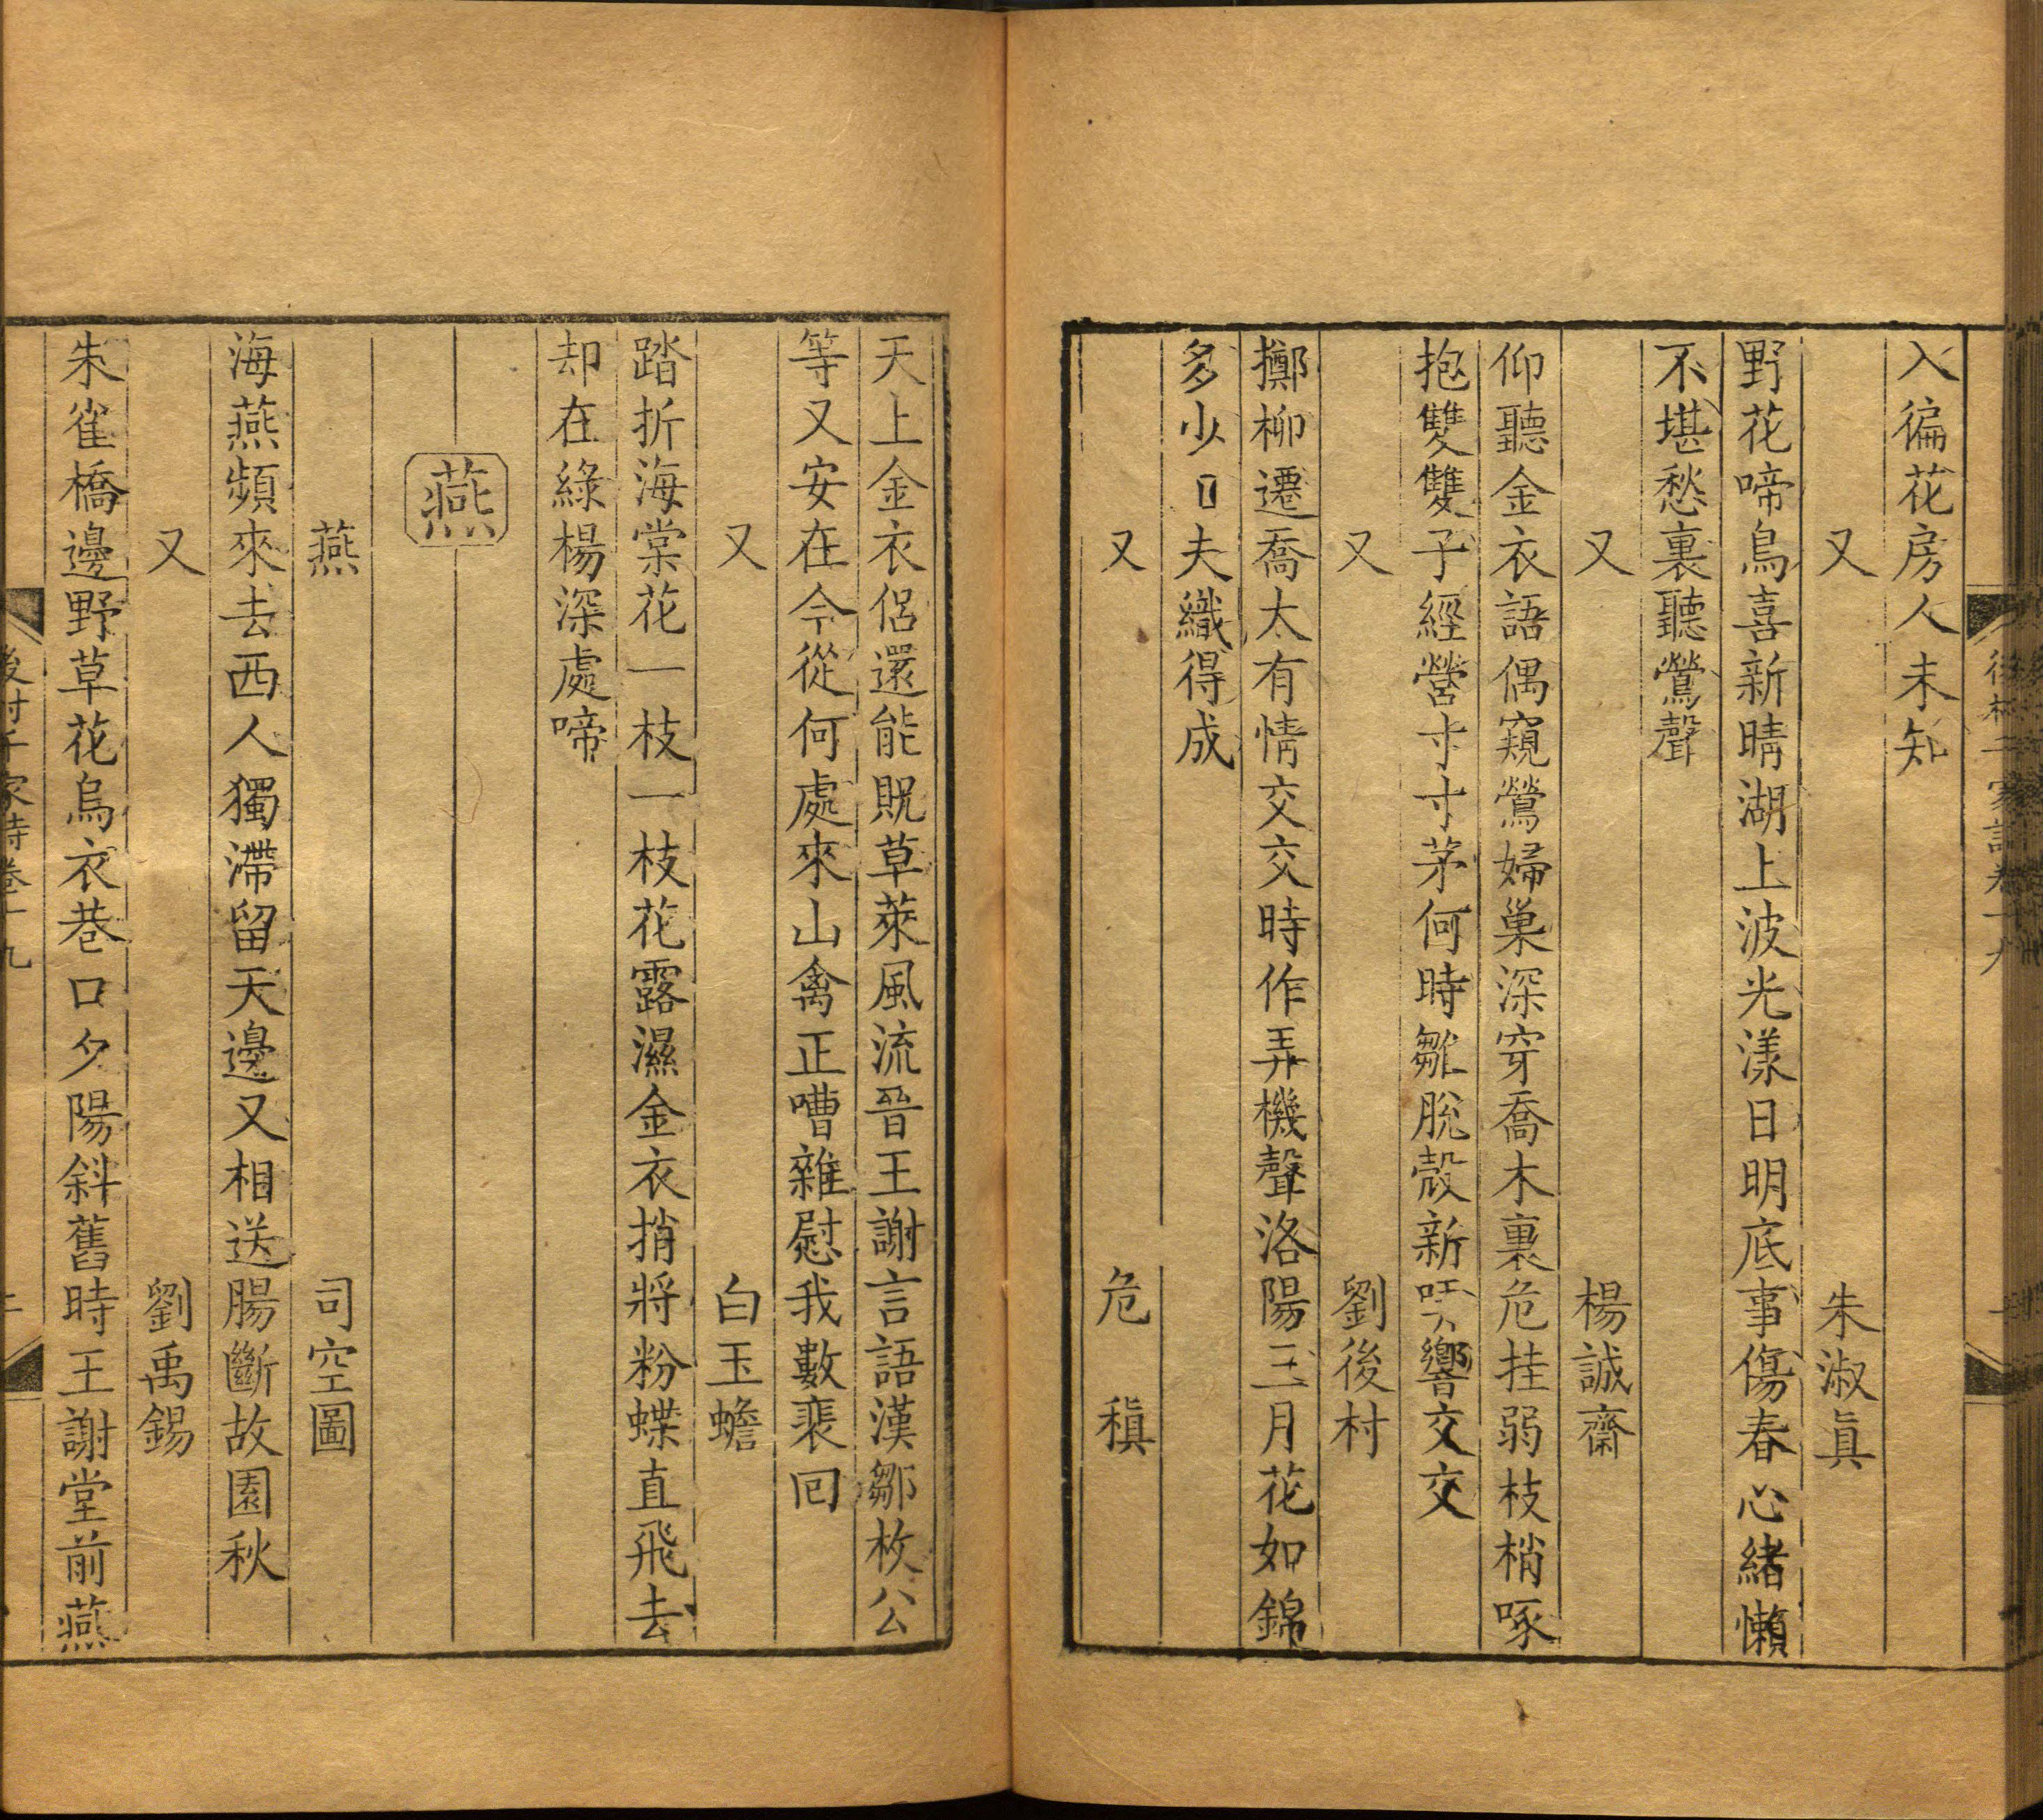 入徧花房人未知
又 朱淑眞
野花啼鳥喜新晴湖上波光漾日明底事傷春心緒懶
不堪愁裏聽鶯聲
又 楊誠齋
仰聽金衣語偶窺鶯婦巢深穿喬木裏危挂弱枝梢啄
抱雙雙子經營寸寸茅何時雛脫殼新哢響交交
又 劉後村
擲柳遷喬太有情交交時作弄機聲洛陽三月花如錦
多少 夫織得成
又 危稹
天上金衣侶還能貺草萊風流晉王謝言語漢鄒枚公
等又安在今從何處來山禽正嘈雜慰我數裴回
又 白玉蟾
踏折海棠花一枝一枝花露濕金衣捎將粉蝶直飛去
却在綠楊深處啼
燕
燕 司空圖
海燕頻來去西人獨滯留天邊又相送腸斷故園秋
又 劉禹錫
朱雀橋邊野草花烏衣巷口夕陽斜舊時王謝堂前燕
後村千家詩卷十九